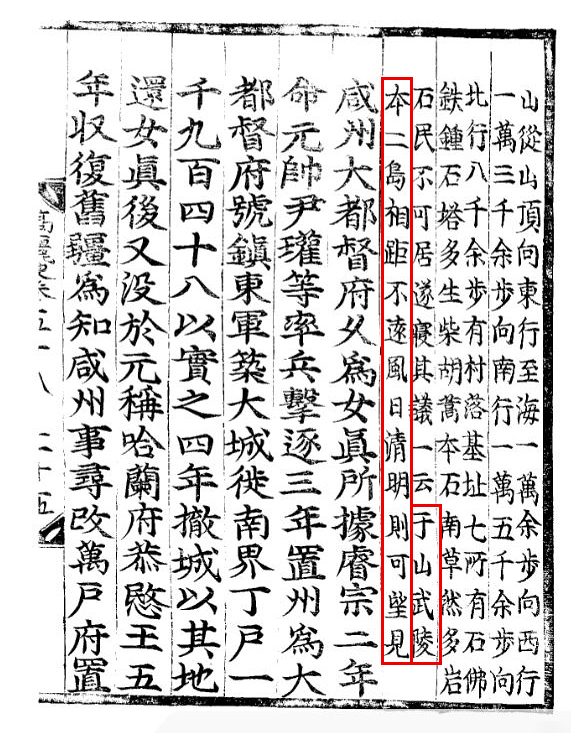 山從山頂向東行至海一萬余步向西行
一萬三千余步向南行一萬五千余步向
北行八千余步有村落基址七所有石佛
鉄鍾石塔多生柴胡蒿夲石南草然多岩
石民不可居遂寝其議一云于山武陵
夲二島相距不遠風日清明則可望見
咸州大都督府久爲女眞所據睿宗二年
命元帥尹瓘等率兵擊逐三年置州爲大
都督府號鎭東軍築大城徙南界丁戶一
千九百四十八以實之四年撤城以其地
還女眞後又没於元稱哈蘭府恭愍王五
年収復舊疆爲知咸州事尋改萬戶府置
高麗史卷五十八 二十五